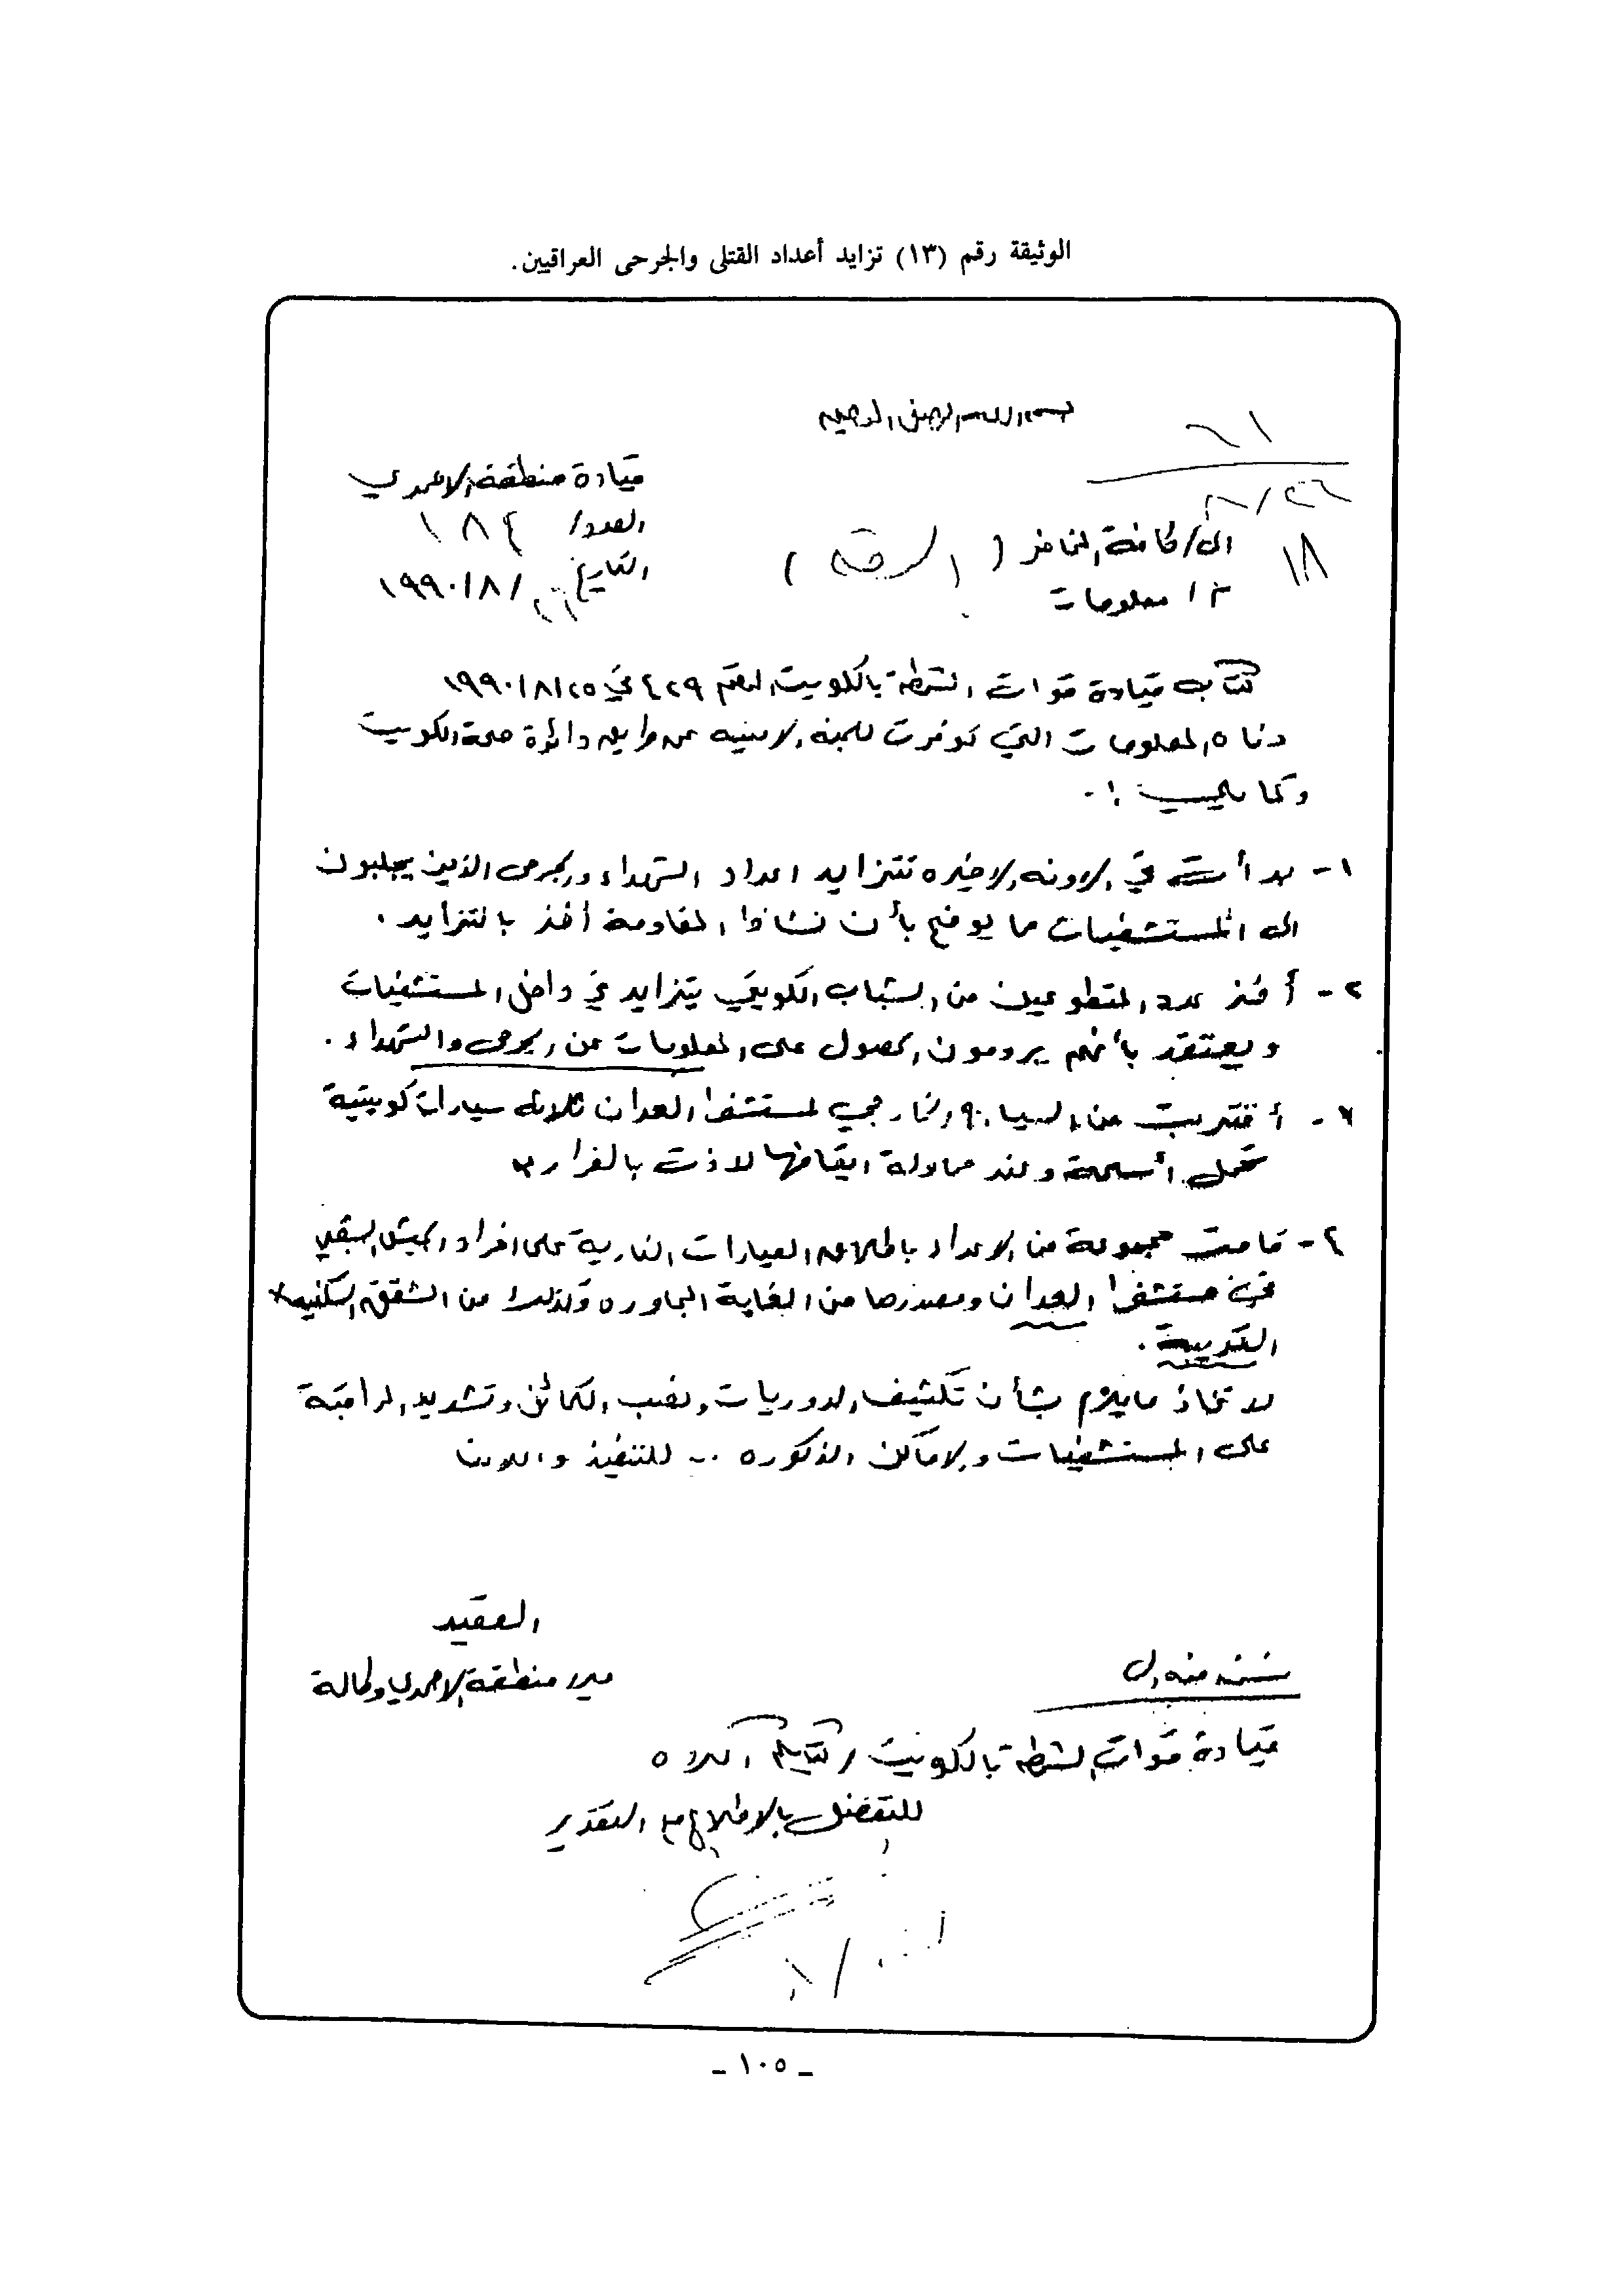 الوثيقة رقم (١٣) تزايد أعداد القتلى والجرحى العراقيين.
بسم الله الرحمن الرحيم
قيادة منطقة الاحمدي
العدد / ١٨٤
التاريخ ٢٦ / ٨ / ١٩٩٠
٢٦ / ٨
١٨
الى / كافة المخافر ( الرقه )
م / معلومات
كتاب قيادة قوات الشرطة بالكويت المرقم ٤٢٩ في ٢٥ / ٨ / ١٩٩٠
دناه المعلومات التي توفرت للجنه الامنيه عن دائرة صحة الكويت
وكما يلي :-
١- بدأت في الاونه الاخيره تتزايد اعداد الشهداء والجرحى الذين يجلبون
الى المستشفيات مما يوضح بأن نشاط المقاومة أخذ بالتزايد .
٢- أخذ عدد المتطوعين من الشباب الكويتي يتزايد في داخل المستشفيات
ويعتقد بأنهم يرومون الحصول على المعلومات عن الجرحى والشهداء .
٣- أقتربت من السياج الخارجي لمستشفى العدان ثلاثة سيارات كويتية
تحمل أسلحة وعند محاولة ايقافها لاذت بالفرار
٤- قامت مجموعة من الاعداء باطلاق العيارات النارية على افراد الجيش الشعبي
في مستشفى العدان ومصدرها من الغابة المجاوره وكذلك من الشقق السكنيه
القريبة .
لاتخاذ مايلزم بشأن تكثيف الدوريات ونصب الكمائن وتشديد المراقبة
على المستشفيات والاماكن المذكوره .. للتنفيذ واعلامنا
العقيد
مدير منطقة الاحمدي وكالة
نسخه منه الى
قيادة قوات الشرطة بالكويت / كتابكم اعلاه
للتفضل بالاطلاع مع التقدير
ـ ١٠٥ ـ